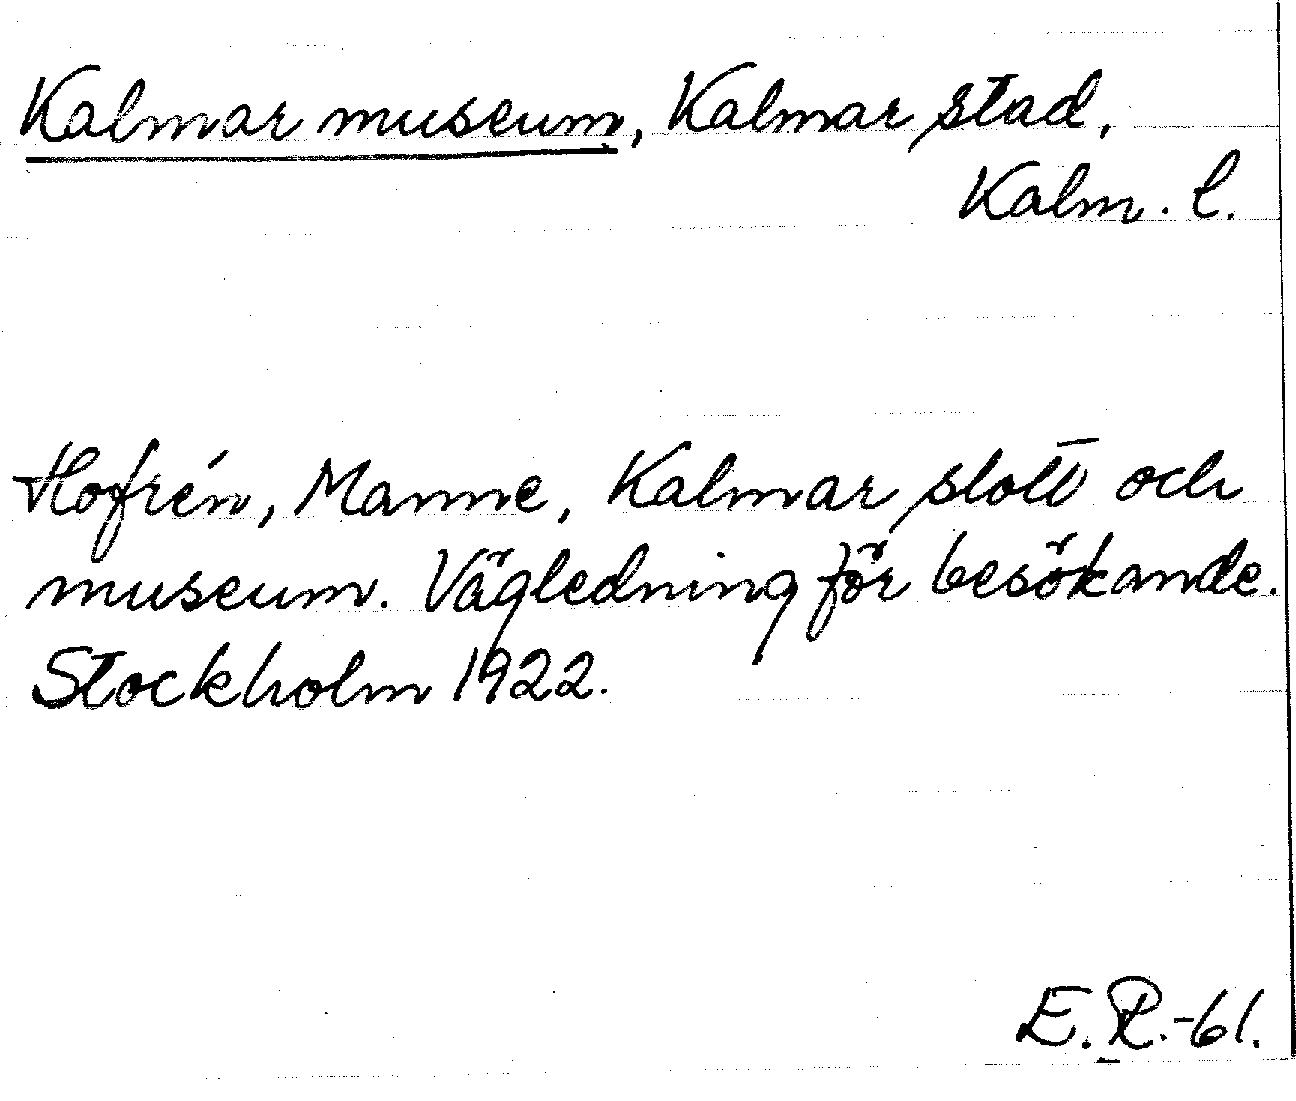 Kalmar museum, Kalmar stad,
Kalm. l.
Hofrén, Manne, Kalmar slott och
museum. Vägledning för besökande.
Stockholm 1922.
E. R.-61.